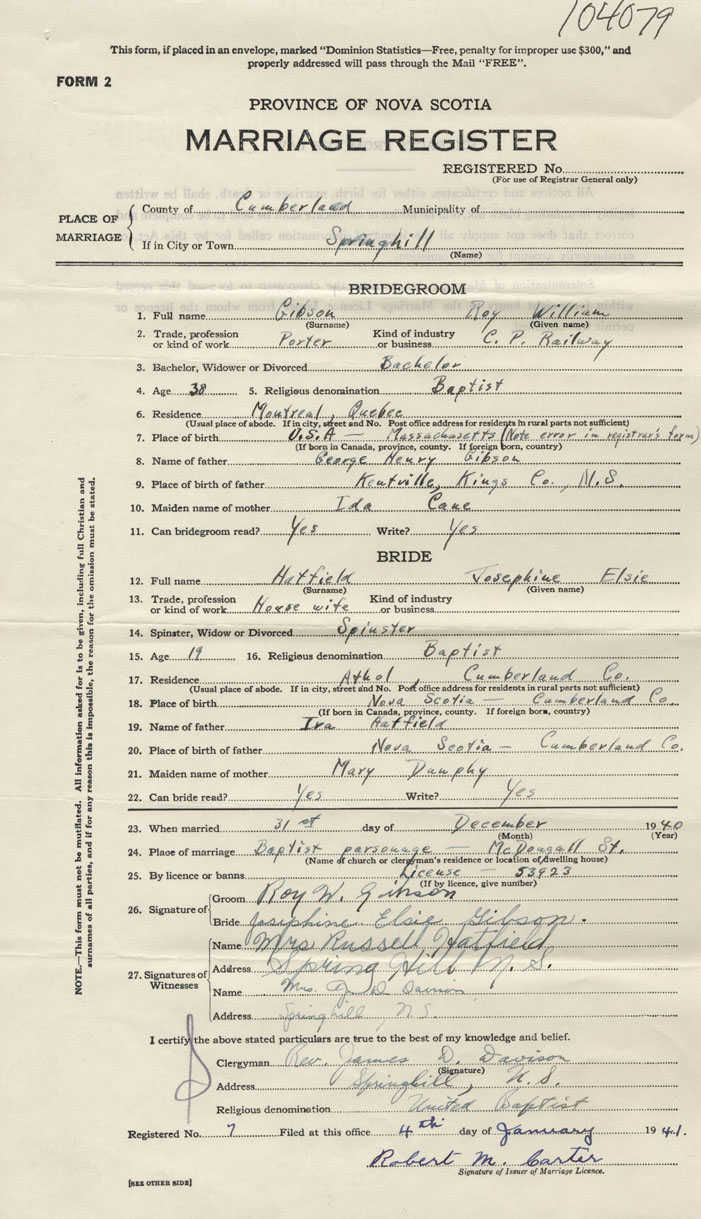 104079
This form, if placed in an envelope, marked "Dominion Statistics—Free, penalty for improper use $300," and
properly addressed will pass through the Mail "FREE".
FORM 2
PROVINCE OF NOVA SCOTIA
MARRIAGE REGISTER
REGISTERED No.
(For use of Registrar General only)
PLACE OF MARRIAGE
County of Cumberland Municipality of
If in City or Town Springhill
(Name)
BRIDEGROOM
1. Full name Gibson Roy William
(Surname) (Given name)
2. Trade, profession or kind of work Porter Kind of industry or business C. P. Railway
3. Bachelor, Widower or Divorced Bachelor
4. Age 38 5. Religious denomination Baptist
6. Residence Montreal, Quebec
(Usual place of abode. If in city, street and No. Post office address for residents in rural parts not sufficient)
7. Place of birth U.S.A — Massachusetts (Note error in registrar's form)
(If born in Canada, province, county. If foreign born, country)
8. Name of father George Henry Gibson
9. Place of birth of father Kentville, Kings Co., N.S.
10. Maiden name of mother Ida Cane
11. Can bridegroom read? Yes Write? Yes
BRIDE
12. Full name Hatfield Josephine Elsie
(Surname) (Given name)
13. Trade, profession or kind of work House wife Kind of industry or business
14. Spinster, Widow or Divorced Spinster
15. Age 19 16. Religious denomination Baptist
17. Residence Athol, Cumberland Co.
(Usual place of abode. If in city, street and No. Post office address for residents in rural parts not sufficient)
18. Place of birth Nova Scotia — Cumberland Co.
(If born in Canada, province, county. If foreign born, country)
19. Name of father Ira Hatfield
20. Place of birth of father Nova Scotia — Cumberland Co.
21. Maiden name of mother Mary Dumphy
22. Can bride read? Yes Write? Yes
23. When married 31st day of December 1940
(Month) (Year)
24. Place of marriage Baptist parsonage — McDougall St.
(Name of church or clergyman's residence or location of dwelling house)
25. By licence or banns License — 53923
(If by licence, give number)
26. Signature of
Groom Roy W. Gibson
Bride Josephine Elsie Gibson.
27. Signatures of Witnesses
Name Mrs Russell Hatfield
Address Spring Hill N.S.
Name Mrs. J. D. Davison
Address Springhill, N.S.
I certify the above stated particulars are true to the best of my knowledge and belief.
Clergyman Rev. James D. Davison
(Signature)
Address Springhill, N.S.
Religious denomination United Baptist
Registered No. 7 Filed at this office 4th day of January 1941.
Robert M. Carter
Signature of Issuer of Marriage Licence.
[SEE OTHER SIDE]
NOTE.—This form must not be mutilated. All information asked for is to be given, including full Christian and
surnames of all parties, and if for any reason this is impossible, the reason for the omission must be stated.